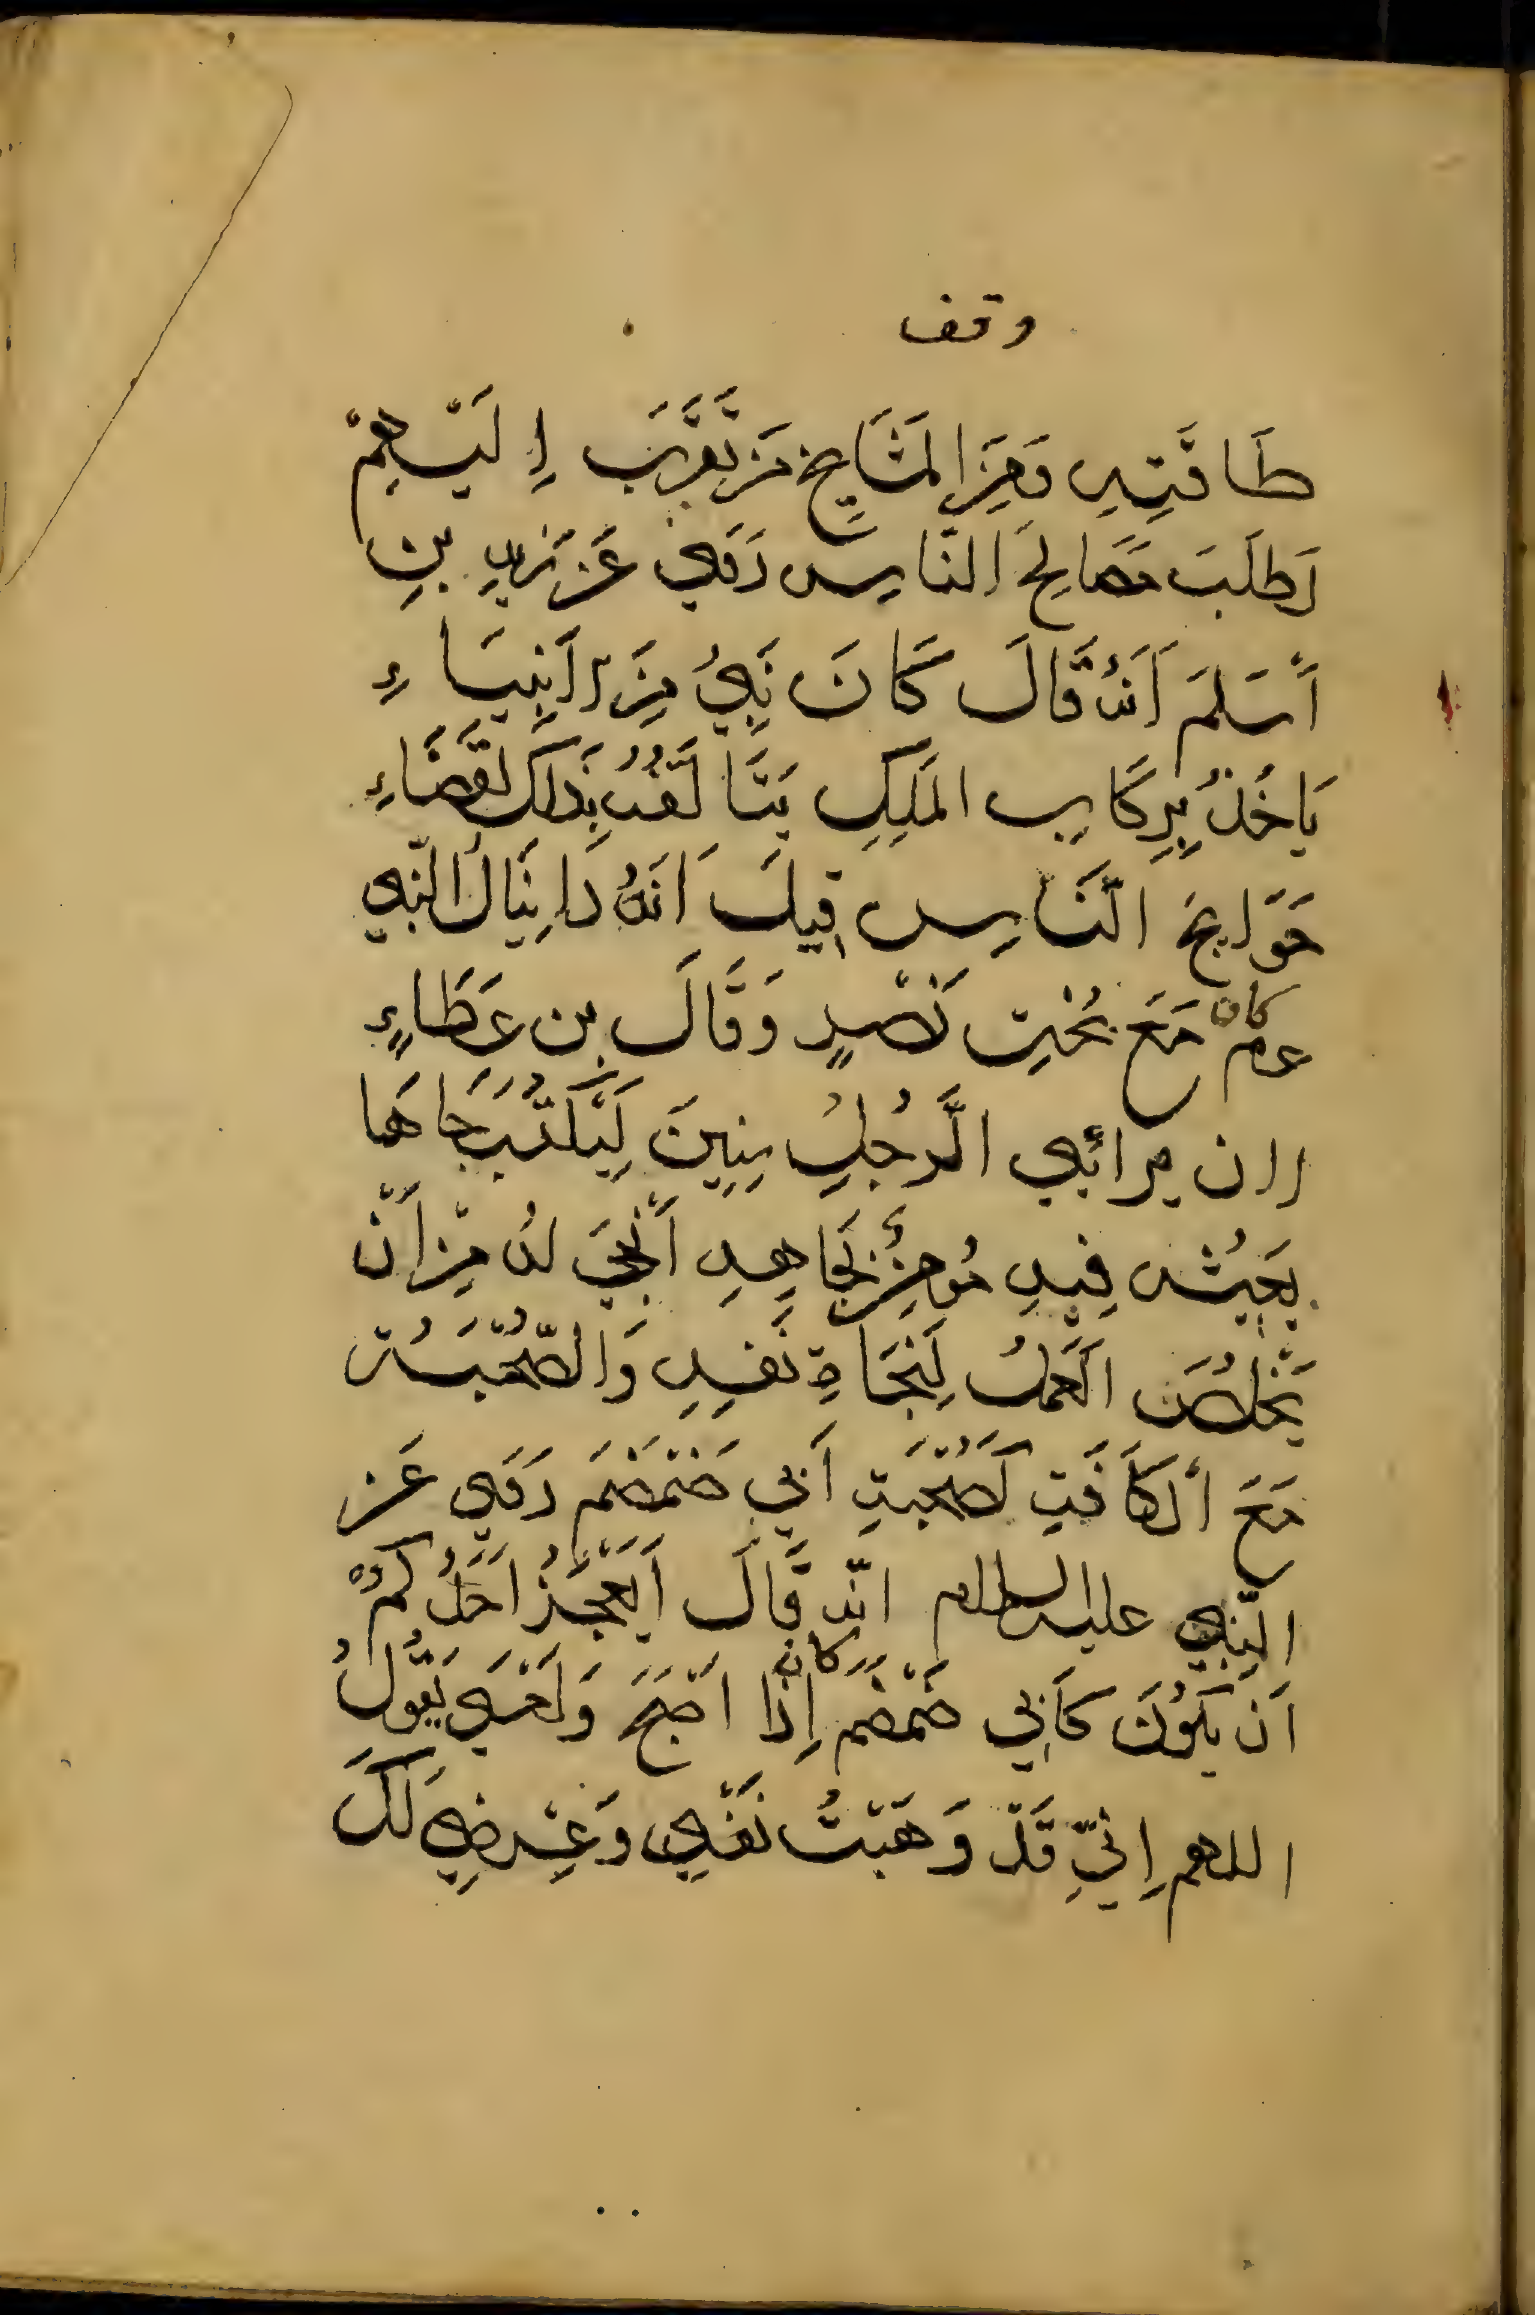 وقف
طَاقَتِهِ وَمِنَ المَشَايِخِ مَن تَقَرَّبَ إِلَيْهِمْ
رَطَلَبَ مَصَالِحَ النَّاسِ رَوَى عَن زَيْدِ بنِ
أَسْلَمَ اَنَهُ قَالَ كَانَ نَبِيُ مِنَ الَانبِيَاءِ
يَاخُذُ بِرِكَابِ المَلِكِ يَتَالَفُهُ بِذَلِكَ لقَضَاءِ
حَوَايجَ النَّاسِ قِيلَ اَنَهُ دَانِيَالُ النَّبِي
عم كان مَعَ بُخْتِ نَصْرٍ وَقَالَ بن عَطَاءٍ
لان يرائي الرَّجُلُ سِنِينَ لِيَكْتَسِبَ جَاهَا
يَعِيْشُ فِيهِ مُومِنُ بِجَاهِهِ اَنْجَى لهُ مِنْ أَنْ
يَخْلُصَ العَمَلُ لِنَجَاةِ نَفسِهِ وَالصُّحْبَتُ
مَعَ ألكَافَتِ كَصُحْبَتِ اَبِي ضَمْضَمَ رَوَى عَن
النَّبِي عليه السلام انّه قَالَ اَيَعْجَزُ اَحَدُكُمْ
اَن يَكُونَ كَاَبِي ضَمْضَم كان اِذَا اَصْبَحَ وَاَمْسَى يَقُولُ
اللهم اِنِّي قَدْ وَهَبْتُ نَفْسِي وَعِرْضِي لَكَ